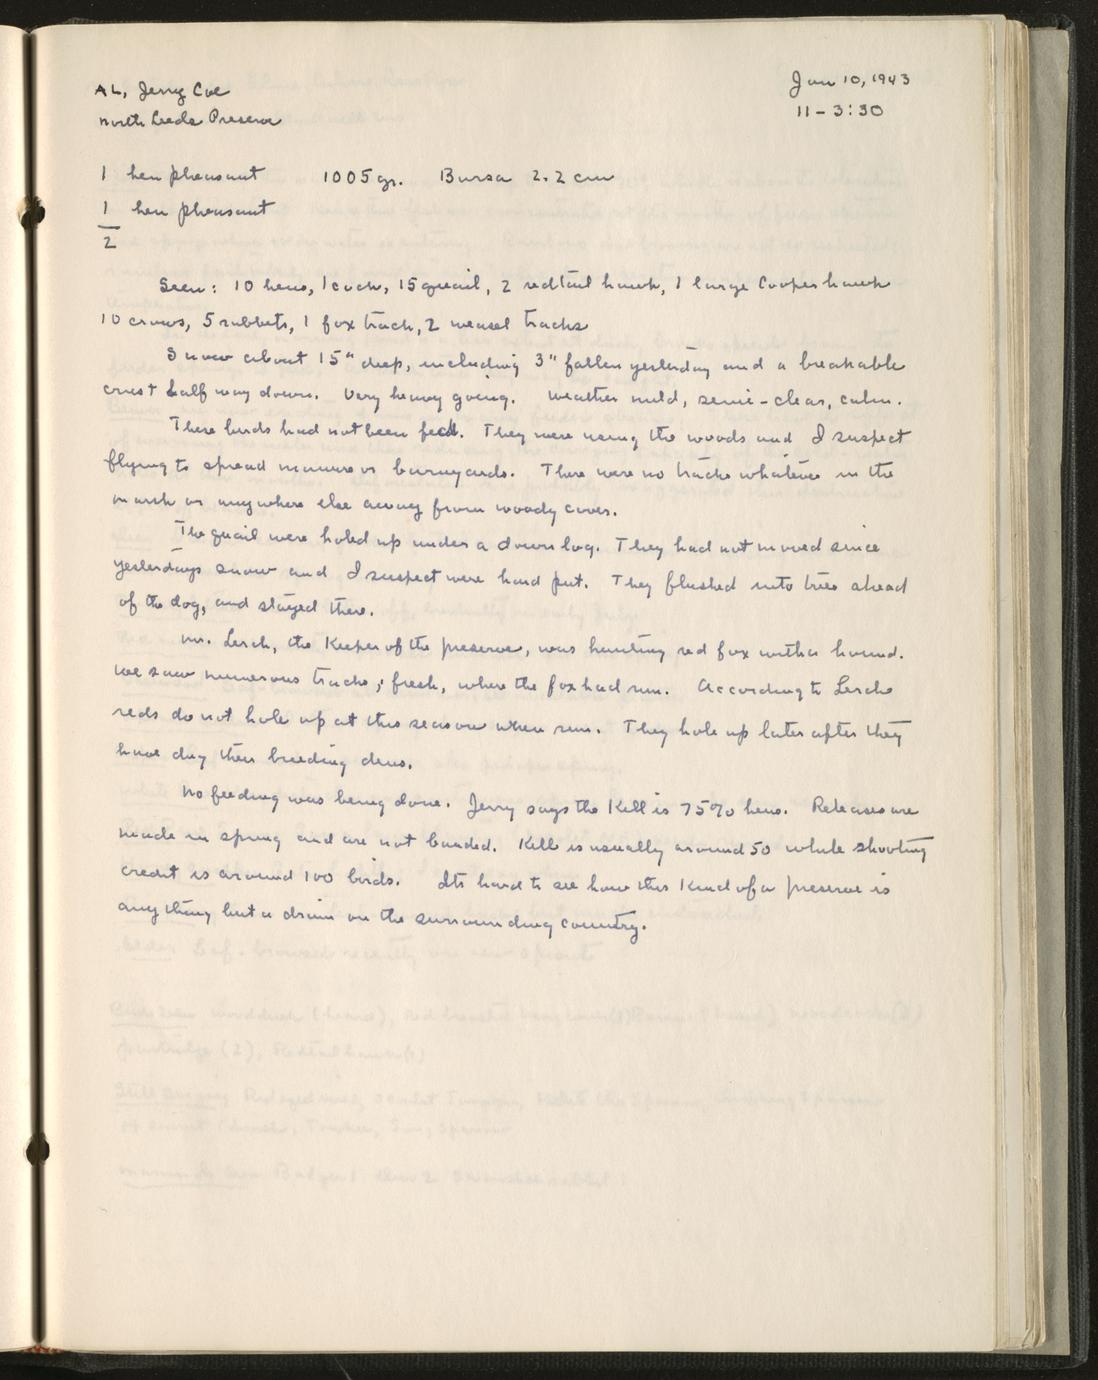 AL, Jerry Coe
Jan 10, 1943
North Leeds Preserve
11 - 3:30
1 hen pheasant 1005 gr. Bursa 2.2 cm
1 hen pheasant
2
Seen: 10 hens, 1 cock, 15 quail, 2 redtail hawk, 1 large Cooper hawk
10 crows, 5 rabbits, 1 fox track, 2 weasel tracks
Snow about 15" deep, including 3" fallen yesterday and a breakable
crust half way down. Very heavy going. Weather mild, semi-clear, calm.
These birds had not been fed. They were using the woods and I suspect
flying to spread manure or barnyards. There were no tracks whatever in the
marsh or anywhere else away from woody cover.
The quail were holed up under a down log. They had not moved since
yesterdays snow and I suspect were hard put. They flushed into trees ahead
of the dog, and stayed there.
Mr. Lerch, the Keeper of the preserve, was hunting red fox with a hound.
We saw numerous tracks, fresh, where the fox had run. According to Lerch
reds do not hole up at this season when run. They hole up later after they
have dug their breeding dens.
No feeding was being done. Jerry says the Kill is 75% hens. Releases are
made in spring and are not banded. Kill is usually around 50 while shooting
credit is around 100 birds. Its hard to see how this Kind of a preserve is
anything but a drain on the surrounding country.